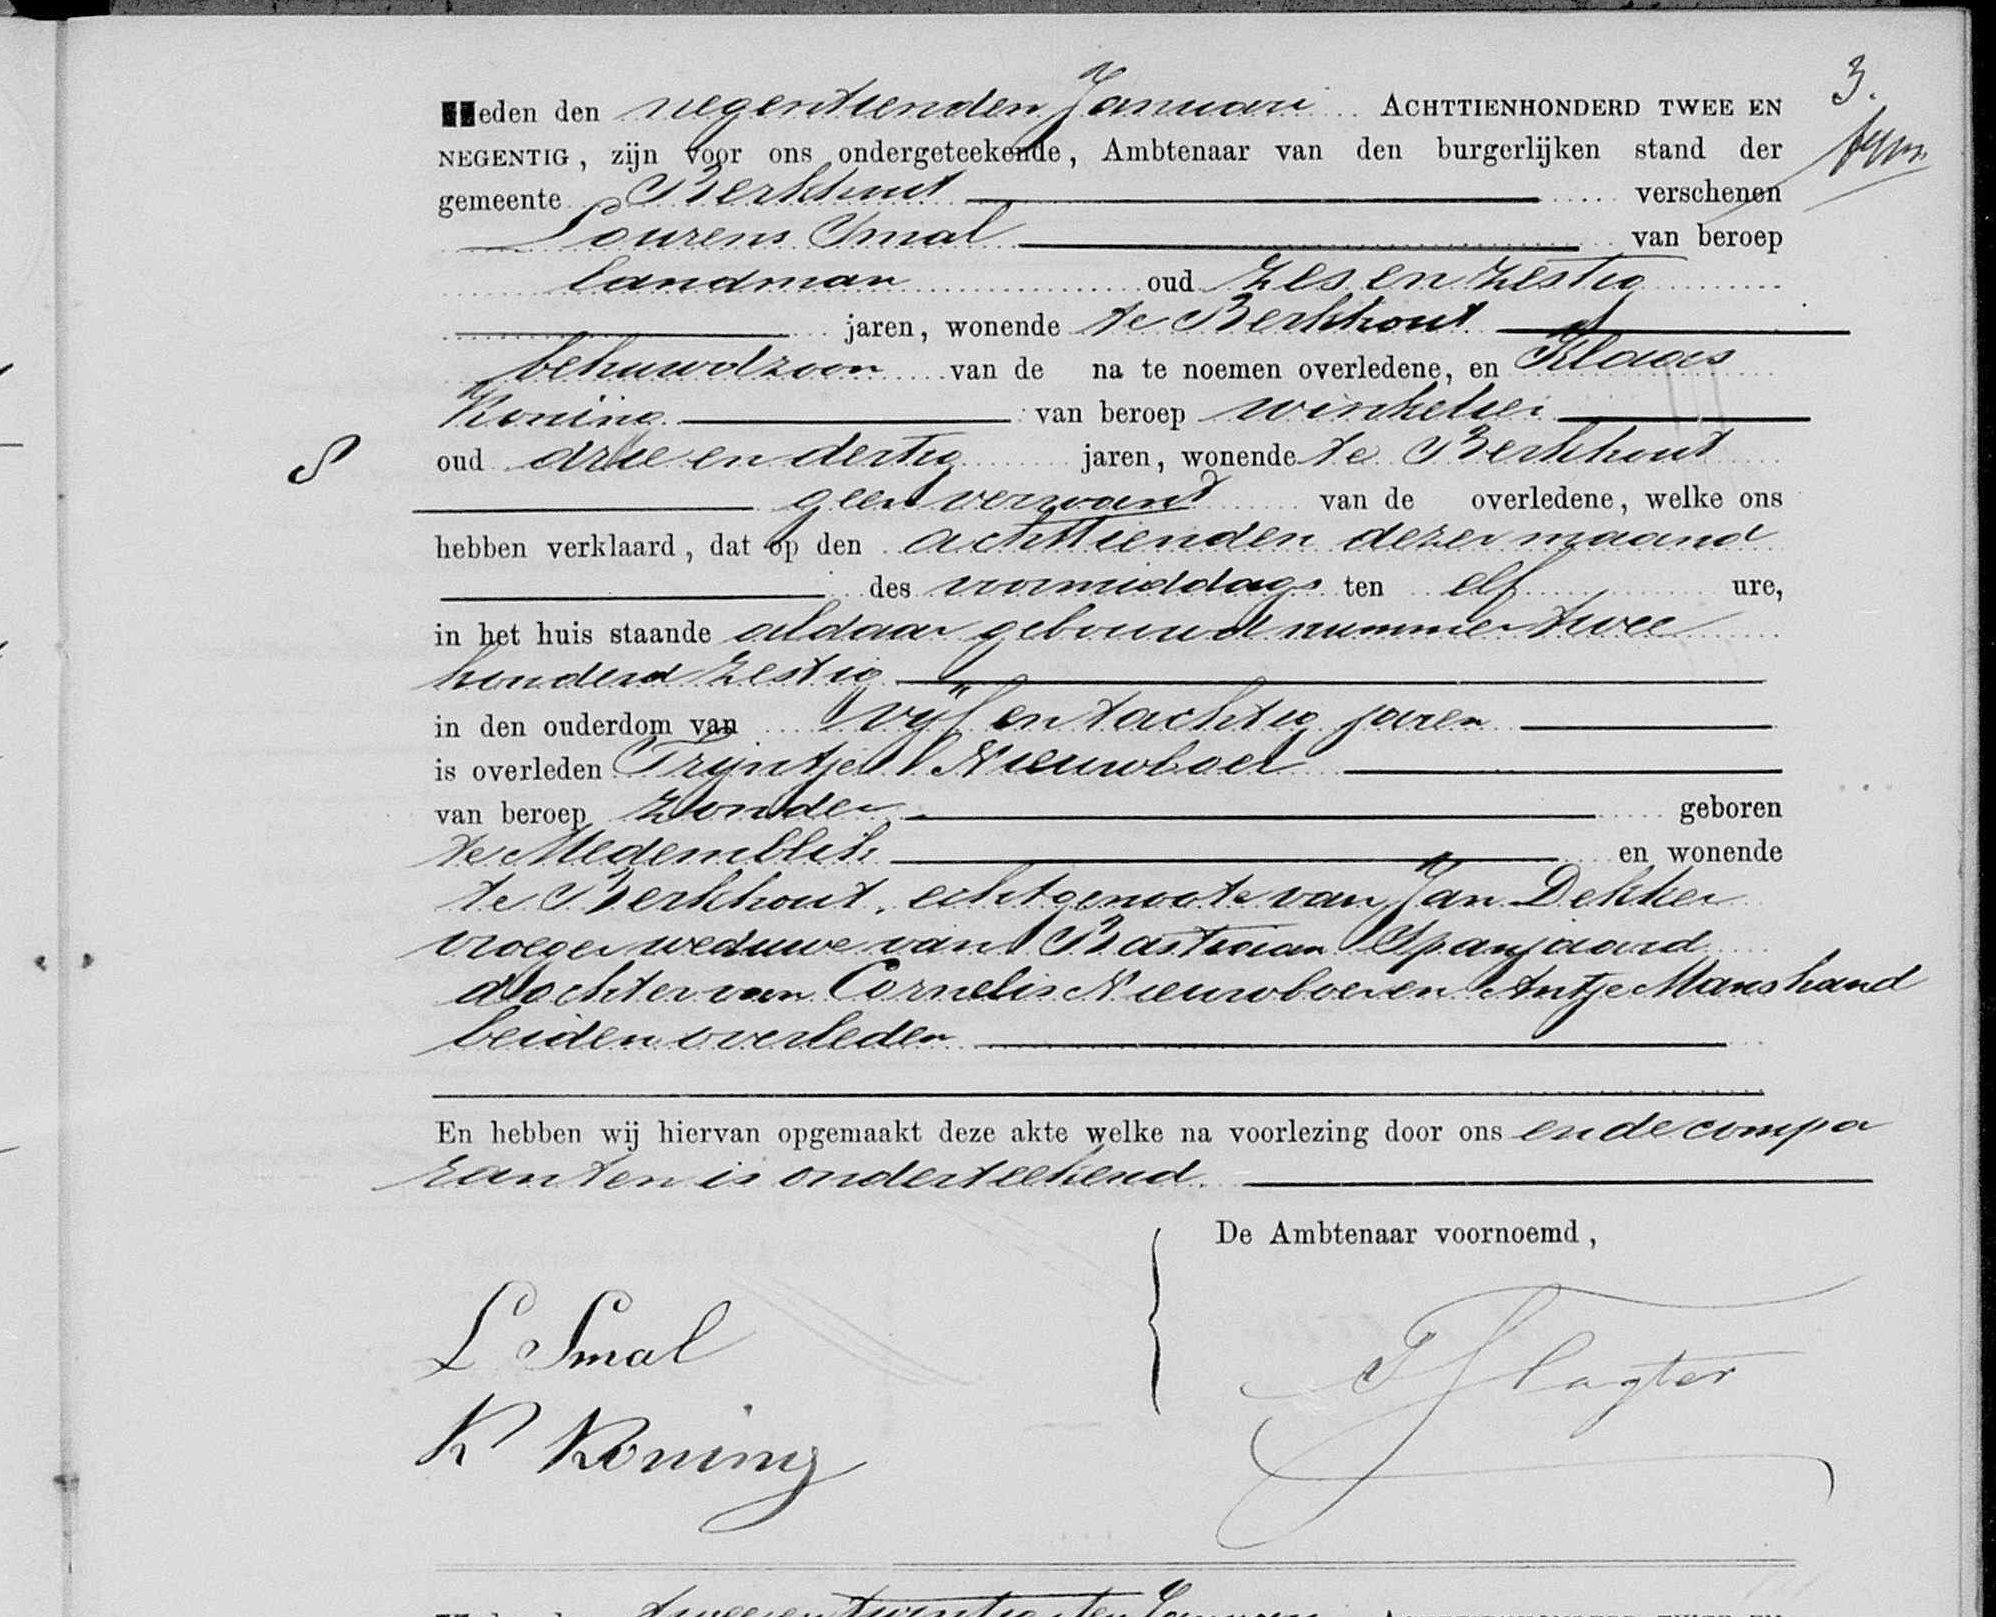 3.
Heden den negentienden Januari ACHTTIENHONDERD TWEE EN
NEGENTIG, zijn voor ons ondergeteekende, Ambtenaar van den burgerlijken stand der
gemeente Berkhout verschenen
Lourens Smal van beroep
landman oud zes en zestig
jaren, wonende te Berkhout
behuwdzoon van de na te noemen overledene, en Klaas
Koning van beroep winkelier
oud drie en dertig jaren, wonende te Berkhout
geen verwand van de overledene, welke ons
hebben verklaard, dat op den achttienden dezer maand
des voormiddags ten elf ure,
in het huis staande aldaar gebouwd nummer twee
honderd zestig
in den ouderdom van vijf en tachtig jaren
is overleden Trijntje Nieuwboer
van beroep zonder geboren
te Medemblik en wonende
te Berkhout, echtgenoote van Jan Dekker
vroeger weduwe van Bastiaan Spanjaard
dochter van Cornelis Nieuwboer en Antje Manshand
beiden overleden
En hebben wij hiervan opgemaakt deze akte welke na voorlezing door ons en de compa
ranten is onderteekend.
De Ambtenaar voornoemd,
L Smal
Slagter
K Koning